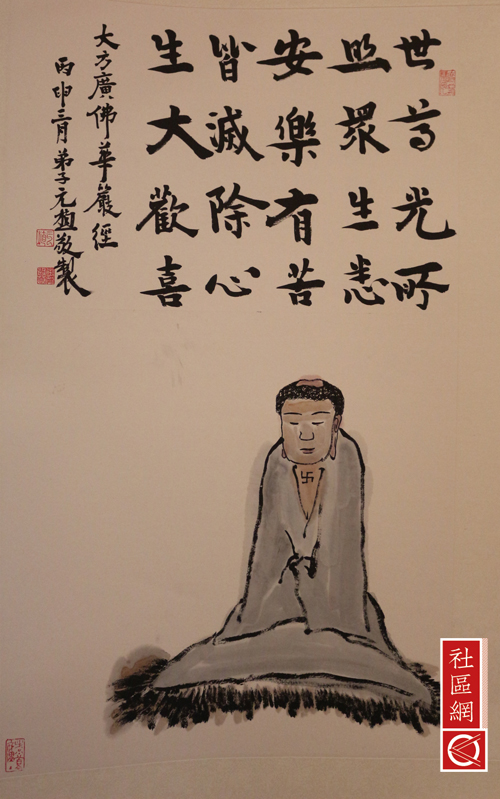 世尊光所
照眾生悉
安樂有苦
皆滅除心
生大歡喜
大方廣佛華嚴經
丙申三月弟子元植敬製
社區網